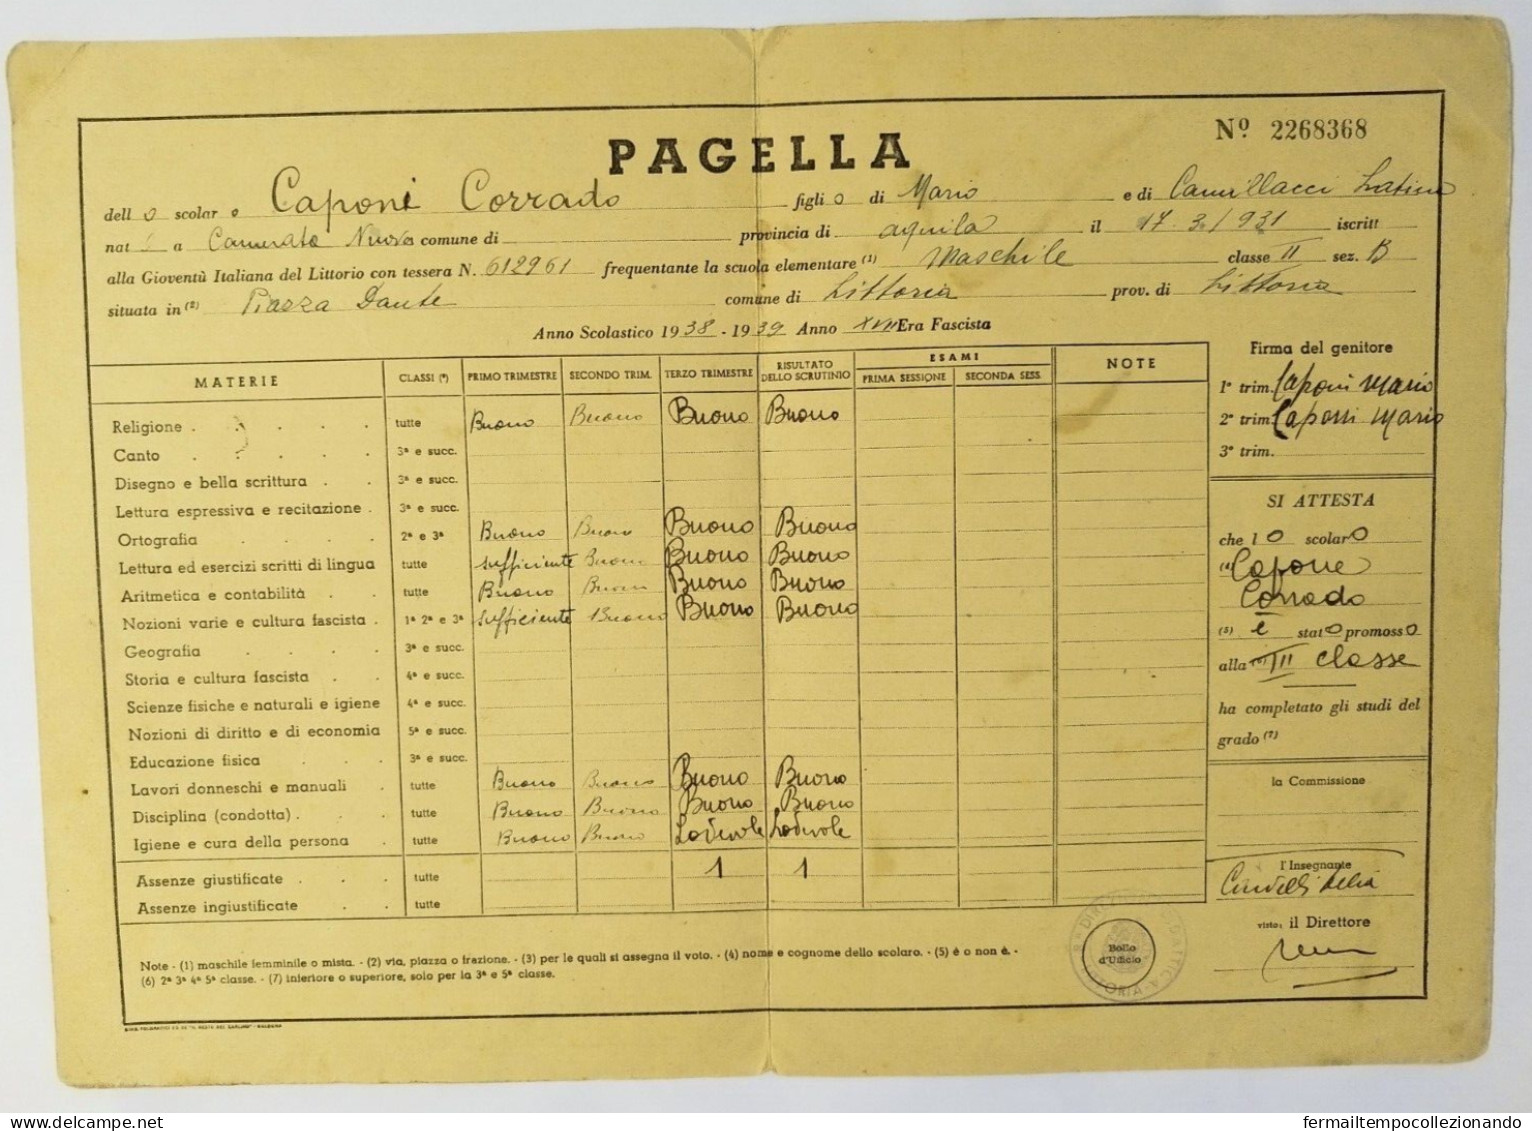 Nº 2268368
PAGELLA
dell o scolar o Caponi Corrado figli o di Mario e di Camillacci Latina
nat i a Camerata Nuova comune di provincia di Aquila il 17.3.1931 iscritt
alla Gioventù Italiana del Littorio con tessera N. 612961 frequentante la scuola elementare (1) Maschile classe II sez. B
situata in (2) Piazza Dante comune di Littoria prov. di Littoria
Anno Scolastico 1938 - 1939 Anno XVII Era Fascista
MATERIE CLASSI (*) PRIMO TRIMESTRE SECONDO TRIM. TERZO TRIMESTRE RISULTATO DELLO SCRUTINIO ESAMI PRIMA SESSIONE SECONDA SESS. NOTE
Religione . . . . . tutte Buono Buono Buono Buono
Canto . . . . . 3ª e succ.
Disegno e bella scrittura . . 3ª e succ.
Lettura espressiva e recitazione . 3ª e succ.
Ortografia . . . . 2ª e 3ª Buono Buono Buono Buono
Lettura ed esercizi scritti di lingua tutte sufficiente Buono Buono Buono
Aritmetica e contabilità . . tutte Buono Buono Buono Buono
Nozioni varie e cultura fascista . 1ª 2ª e 3ª sufficiente Buono Buono Buono
Geografia . . . . 3ª e succ.
Storia e cultura fascista . . 4ª e succ.
Scienze fisiche e naturali e igiene 4ª e succ.
Nozioni di diritto e di economia 5ª e succ.
Educazione fisica . . . 3ª e succ.
Lavori donneschi e manuali . tutte Buono Buono Buono Buono
Disciplina (condotta) . . . tutte Buono Buono Buono Buono
Igiene e cura della persona . tutte Buono Buono Lodevole Lodevole
Assenze giustificate . . . tutte 1 1
Assenze ingiustificate . . tutte
Note - (1) maschile femminile o mista. - (2) via, piazza o frazione. - (3) per le quali si assegna il voto. - (4) nome e cognome dello scolaro. - (5) è o non è. -
(6) 2ª 3ª 4ª 5ª classe. - (7) inferiore o superiore, solo per la 3ª e 5ª classe.
Firma del genitore
1º trim. Caponi Mario
2º trim. Caponi Mario
3º trim.
SI ATTESTA
che l o scolaro
(4) Capone
Corrado
(5) è stato promosso
alla (6) III classe
ha completato gli studi del
grado (7)
la Commissione
l'Insegnante
visto: il Direttore
Bollo
d'Ufficio
delcampe.net
fermailtempocollezionando